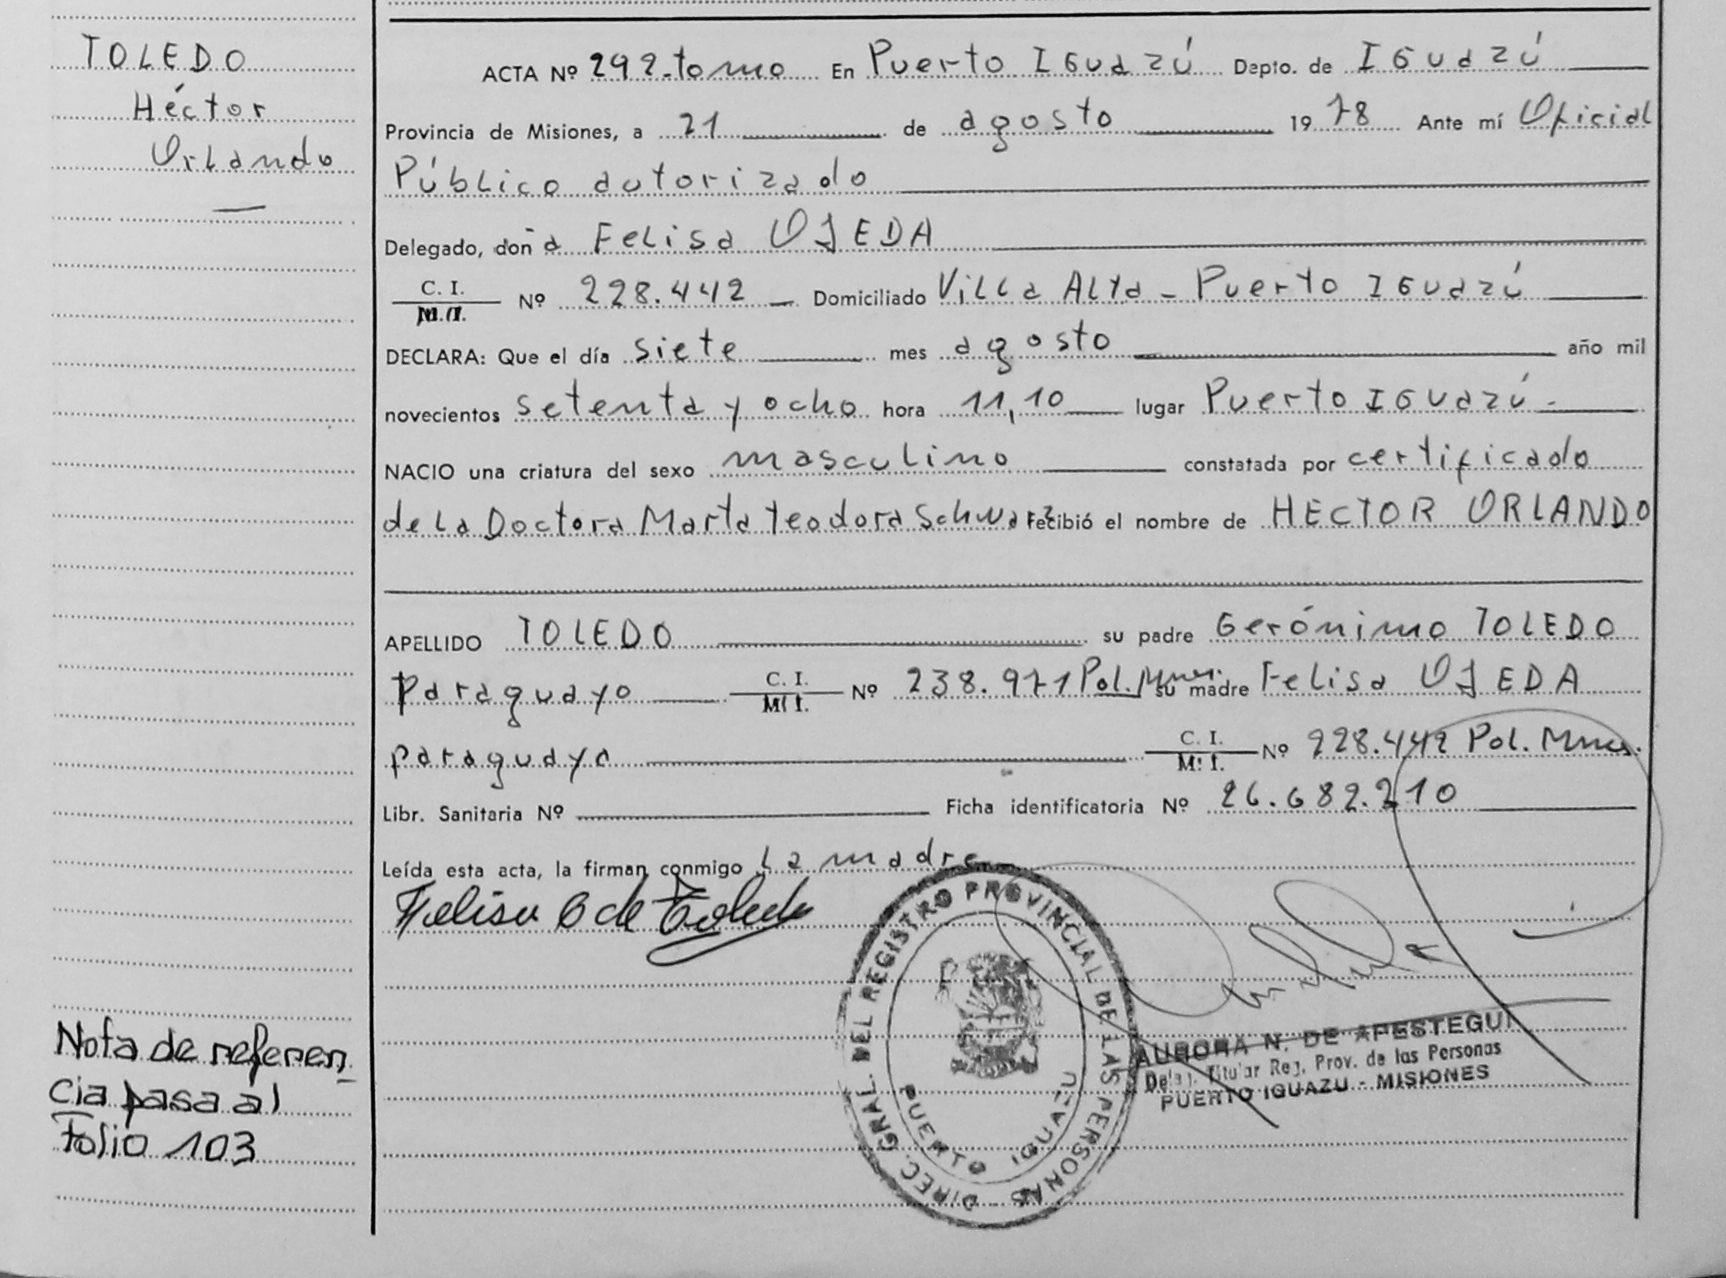 TOLEDO
Héctor
Orlando
ACTA Nº 292.tomo En Puerto IGUAZÚ Depto. de IGUAZÚ
Provincia de Misiones, a 21 de agosto 1978 Ante mí Oficial
Público autorizado
Delegado, doña Felisa OJEDA
C. I.
M.I. Nº 228.442 Domiciliado Villa Alta - Puerto IGUAZÚ
DECLARA: Que el día siete mes agosto año mil
novecientos setenta y ocho hora 11,10 lugar Puerto IGUAZÚ.
NACIO una criatura del sexo masculino constatada por certificado
de la Doctora Marta Teodora Schwarz recibió el nombre de HECTOR ORLANDO
APELLIDO TOLEDO su padre Gerónimo TOLEDO
paraguayo C. I. M. I. Nº 238.971 Pol. Mnes. su madre Felisa OJEDA
paraguaya C. I. M. I. Nº 228.442 Pol. Mnes.
Libr. Sanitaria Nº Ficha identificatoria Nº 26.682.210
Leída esta acta, la firman conmigo La madre
Felisa O de Toledo
DIREC. GRAL. DEL REGISTRO PROVINCIAL DE LAS PERSONAS
PUERTO IGUAZU
AURORA N. DE APESTEGUI
Deleg. Titular Reg. Prov. de las Personas
PUERTO IGUAZU - MISIONES
Nota de referen
cia pasa al
Folio 103